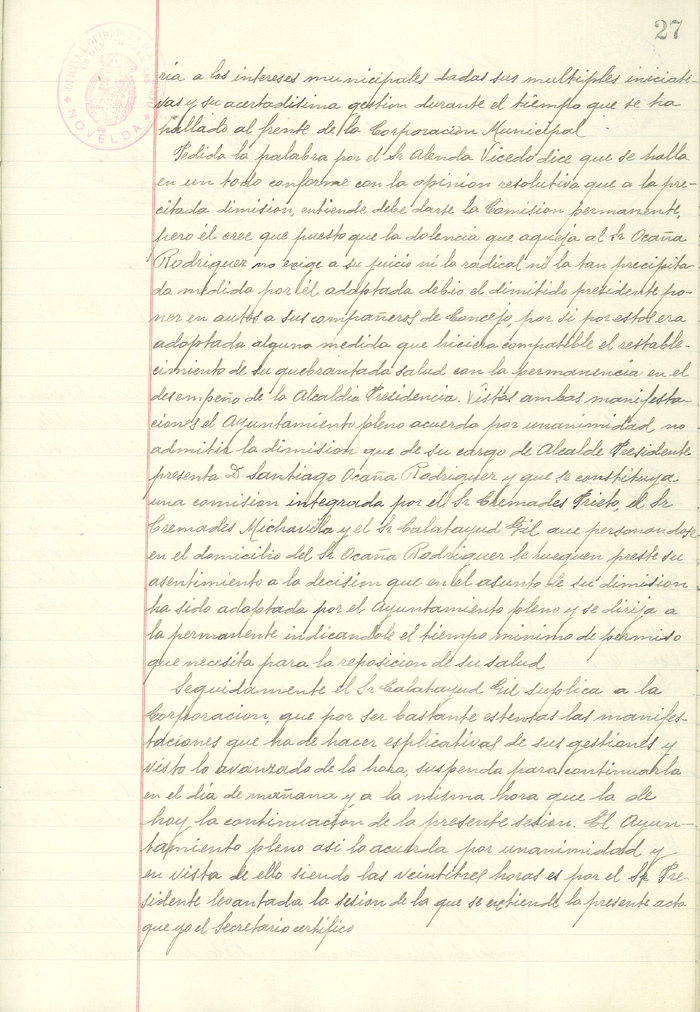 27
NOVELDA
ria a los intereses municipales dadas sus multiples iniciati-
vas y su acertadisima gestion durante el tiempo que se ha
hallado al frente de la Corporación Municipal
Pedida la palabra por el Sr Alenda Vicedo dice que se halla
en un todo conforme con la opinion resolutiva que a la pre-
citada dimision, entiende debe darse la Comision permanente,
pero él cree que puesto que la dolencia que aqueja al Sr Ocaña
Rodriguer no exige a su juicio ni la radical ni la tan precipita-
da medida por él adoptada debio el dimitido presidente po-
ner en autos a sus compañeros de Concejo, por si por estos era
adoptada alguna medida que hiciera compatible el restable-
cimiento de su quebrantada salud con la permanencia en el
desempeño de la Alcaldia Presidencia. Vistas ambas manifesta-
ciones el Ayuntamiento pleno acuerda por unanimidad no
admitir la dimision que de su cargo de Alcalde Presidente
presenta D Santiago Ocaña Rodriguer y que se constituya
una comision integrada por el Sr Cremades Prieto, el Sr
Cremades Michavila y el Sr Calatayud Gil que personandose
en el domicilio del Sr Ocaña Rodriguer le rueguen preste su
asentimiento a la decision que en el asunto de su dimision
ha sido adoptada por el Ayuntamiento pleno y se dirija a
la permanente indicandole el tiempo minimo de permiso
que necesita para la reposicion de su salud
Seguidamente el Sr Calatayud Gil suplica a la
Corporacion, que por ser bastante estensas las manifes-
taciones que ha de hacer esplicativas de sus gestiones y
visto lo avanzado de la hora, suspenda para continuarla
en el día de mañana y a la misma hora que la de
hoy la continuación de la presente sesion. El Ayun-
tamiento pleno asi lo acuerda por unanimidad y
en vista de ello siendo las veintitres horas es por el Sr Pre-
sidente levantada la sesion de la que se extiende la presente acta
que yo el Secretario certifico